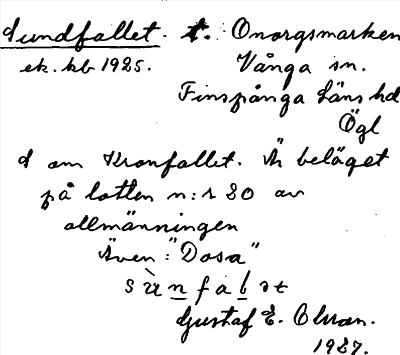 Sundfallet. t. Onorgsmarken
ek. kb 1925. Vånga sn.
Finspånga Läns hd
Ögl
S om Kronfallet. Är beläget
på lotten n:r 80 av
allmänningen
Även: "Dosa"
Gustaf E. Olsson.
1927.